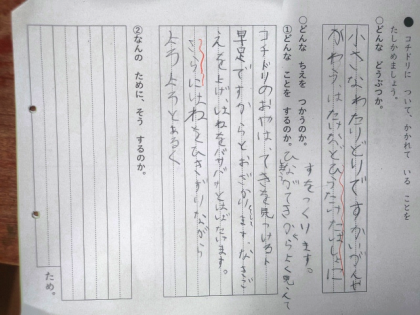 ● コチドリに ついて、かかれて いる ことを
たしかめましょう。
○どんな どうぶつか。
小さなわたりどりです。かいがんや
かわら、はたけなどひらたいばしょに
すをつくります。
○どんな ちえを つかうのか。
①どんな ことを するのか。
ひながてきからよく見えて
コチドリのおやは、てきを見つけると
早足ですからとおざかります。なきご
えを上げ、はねをバサバサとはばたいます。
さらにはねをひきずりながら
よろよろとあるく
②なんの ために、そう するのか。
ため。